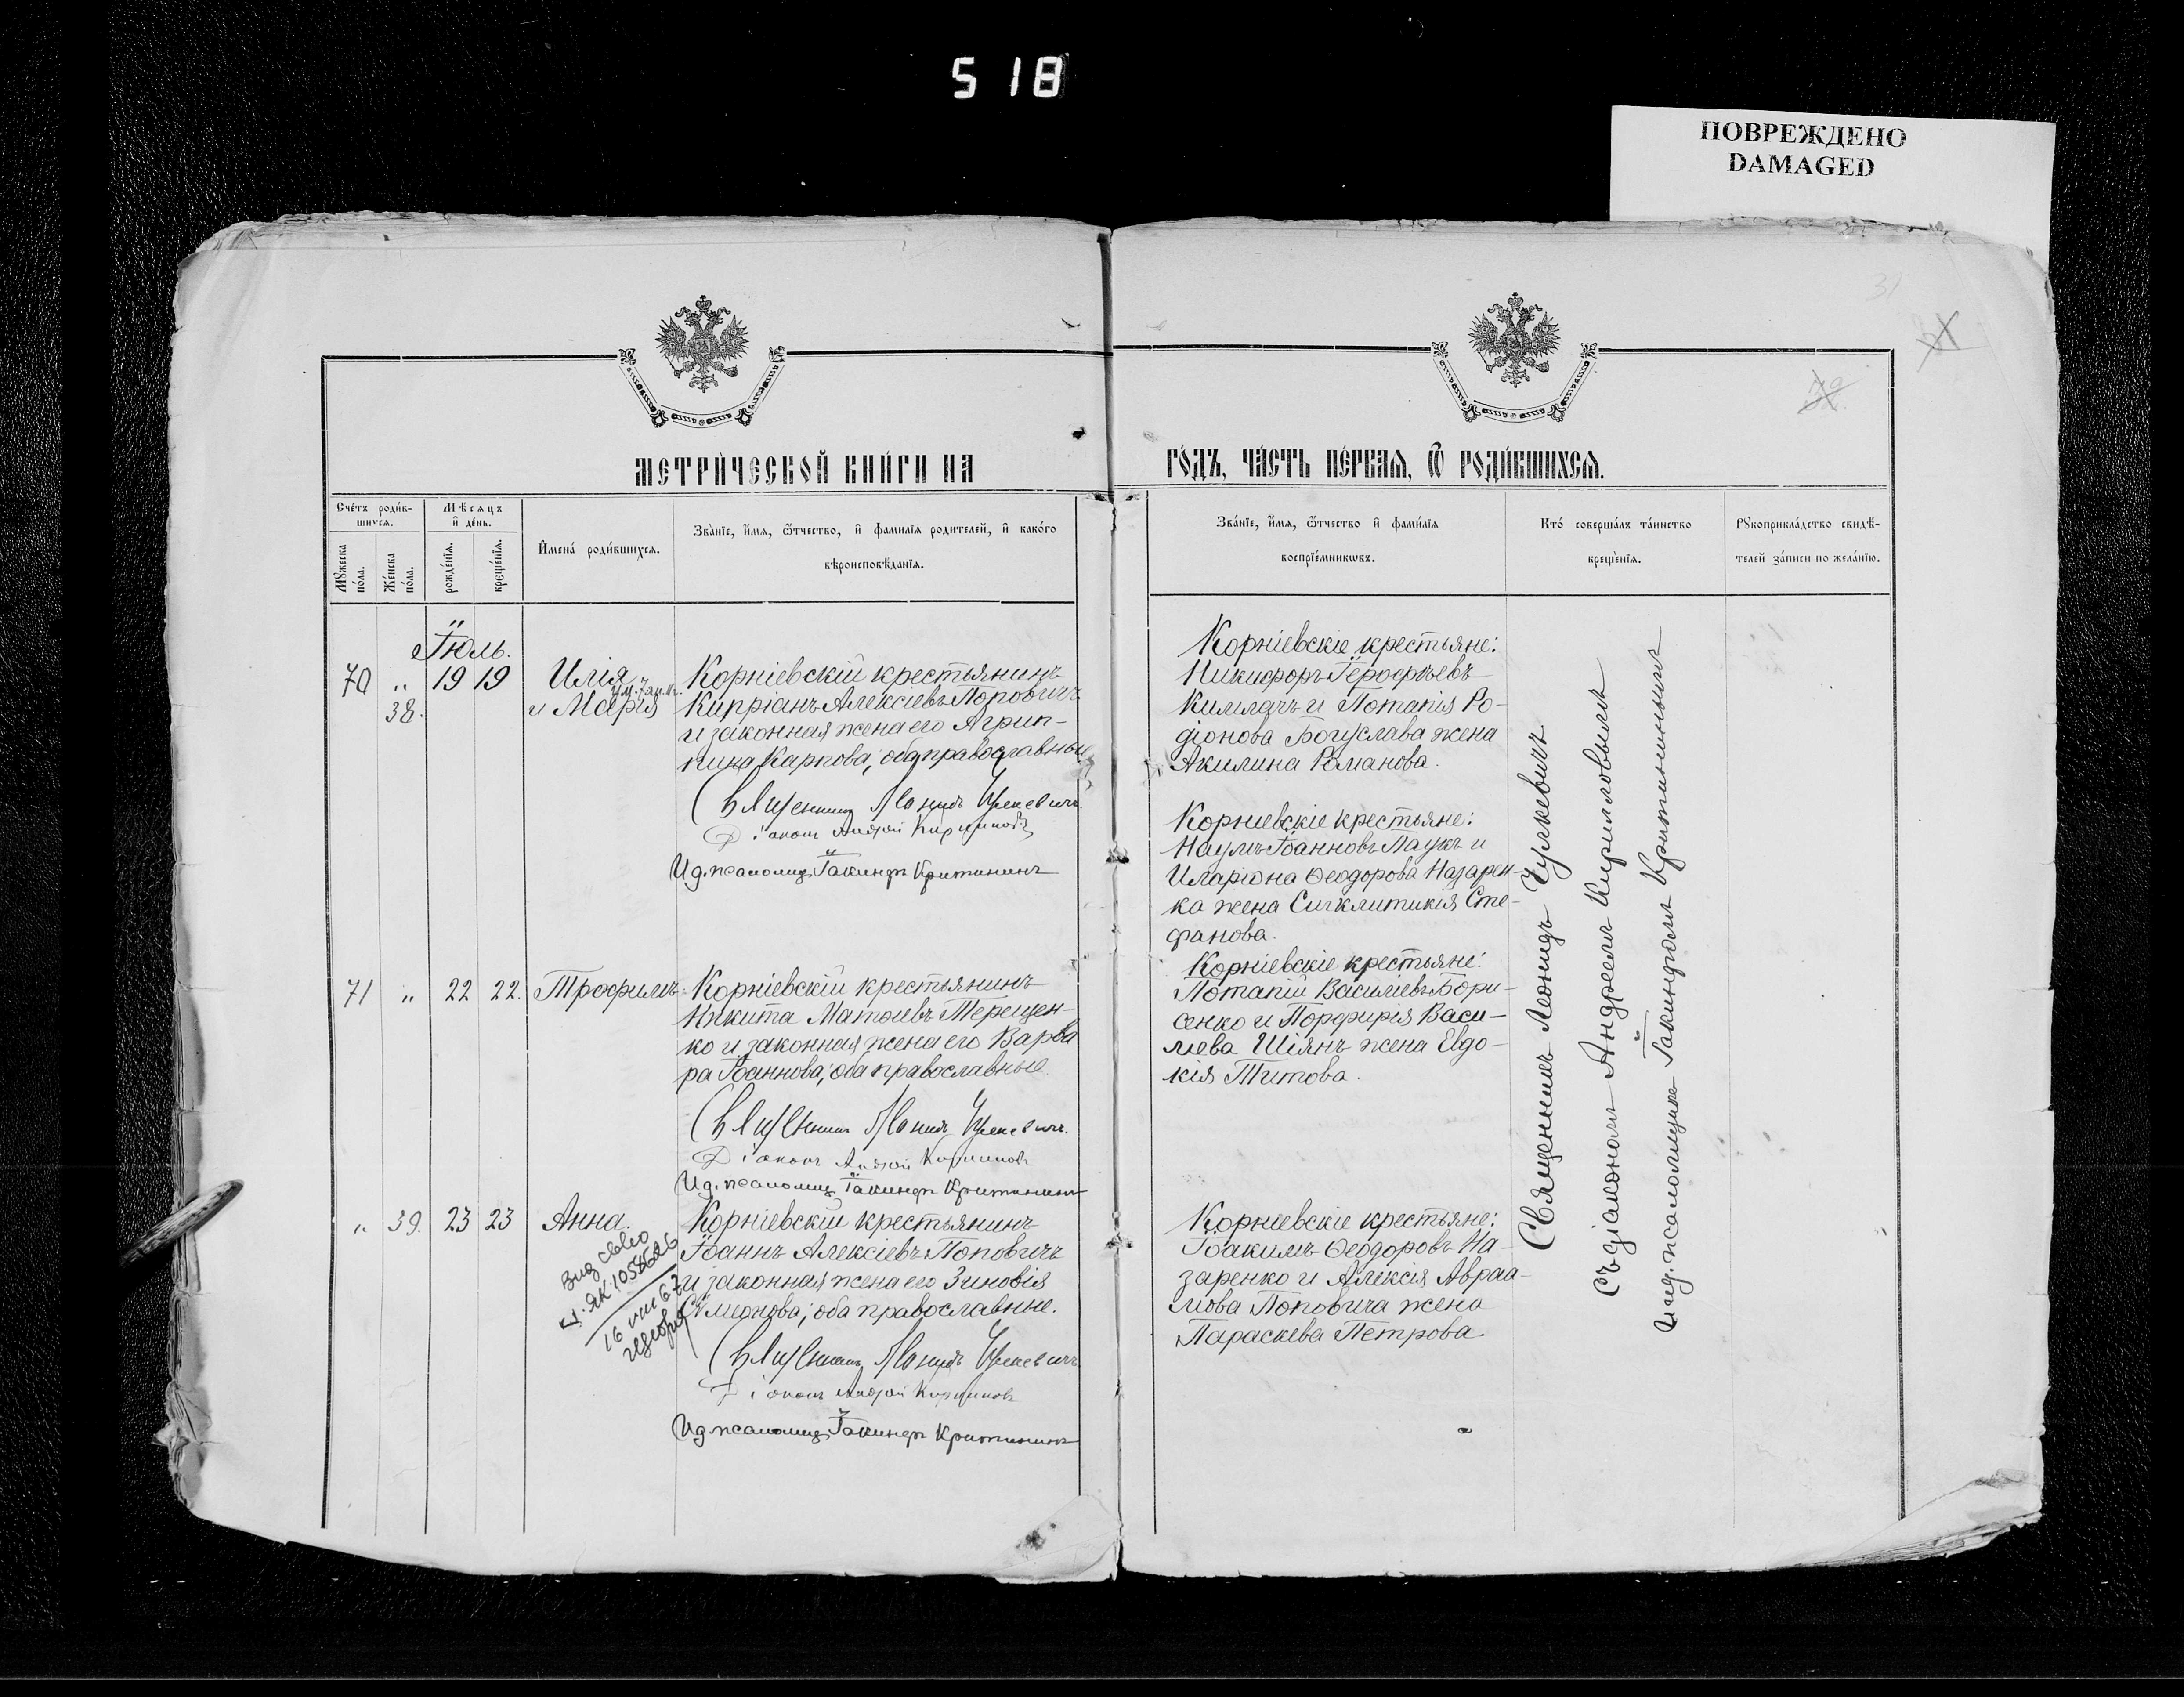 518
ПОВРЕЖДЕНО
DAMAGED
31
МЕТРИ́ЧЕСКОЙ КНИ́ГИ НА
ГО́ДЪ, ЧА́СТЬ ПЕ́РВАѦ, Ѽ РОДИ́ВШИХСѦ.
Сче́тъ роди́в-
шихся.
Мꙋ́жеска по́ла.
Же́нска по́ла.
Мѣ́сяцъ
и҆ де́нь.
рожде́нїѧ.
креще́нїѧ.
И҆мена̀ роди́вшихся.
Зва́нїе, и҆́мѧ, ѻ҆́тчество, и҆ фами́лїѧ родителей, и҆ како́гѡ
вѣроисповѣ́данїѧ.
Зва́нїе, и҆́мѧ, ѻ҆́тчество и҆ фами́лїѧ
воспрїе́мникѡвъ.
Кто̀ соверша́лъ та́инство
креще́нїѧ.
Рꙋкоприкла́дство свидѣ́-
телей за́писи по жела́нїю.
Іюль.
70 „ 19 19 Илія
38. и Марія
Корніевскій крестьянинъ
Кипріанъ Алексіевъ Поповичъ
и законная жена его Агрип-
пина Карпова, оба православные
Священникъ Леонидъ Чулкевичъ
Діаконъ Андрей Кирилловъ
И.д. псаломщ. Іакинфъ Критининъ
Корніевскіе крестьяне:
Никифоръ Іерофѣевъ
и Потапія Ро-
діонова Богуслава жена
Акилина Романова.
Корніевскіе крестьяне:
Наумъ Іоанновъ Паукъ и
Иларіона Ѳеодорова Назарен-
ка жена Сигклитикія Сте-
фанова.
71 „ 22 22. Трофимъ
Корніевскій крестьянинъ
Никита Матѳіевъ Терещен-
ко и законная жена его Варва
ра Іоаннова, оба православные
Священникъ Леонидъ Чулкевичъ
Діаконъ Андрей Кирилловъ
И.д. псаломщ. Іакинфъ Критининъ
Корніевскіе крестьяне:
Потапій Василіевъ Бори-
сенко и Порфирія Васи-
ліева Шіянъ жена Евдо-
кія Титова.
„ 39. 23 23 Анна.
Вид св-во
ЯК 1058626
16 67
Корніевскій крестьянинъ
Іоаннъ Алексіевъ Поповичъ
и законная жена его Зиновія
Сѵмеонова, оба православные.
Священникъ Леонидъ Чулкевичъ
Діаконъ Андрей Кирилловъ
И.д. псаломщ. Іакинфъ Критининъ
Корніевскіе крестьяне:
Іоакимъ Ѳеодоровъ На-
заренко и Алексія Авраа-
мова Поповича жена
Параскева Петрова.
Священникъ Леонидъ Чулкевичъ
съ діакономъ Андреемъ Кирилловымъ
и и.д. псаломщика Іакинфомъ Критининымъ